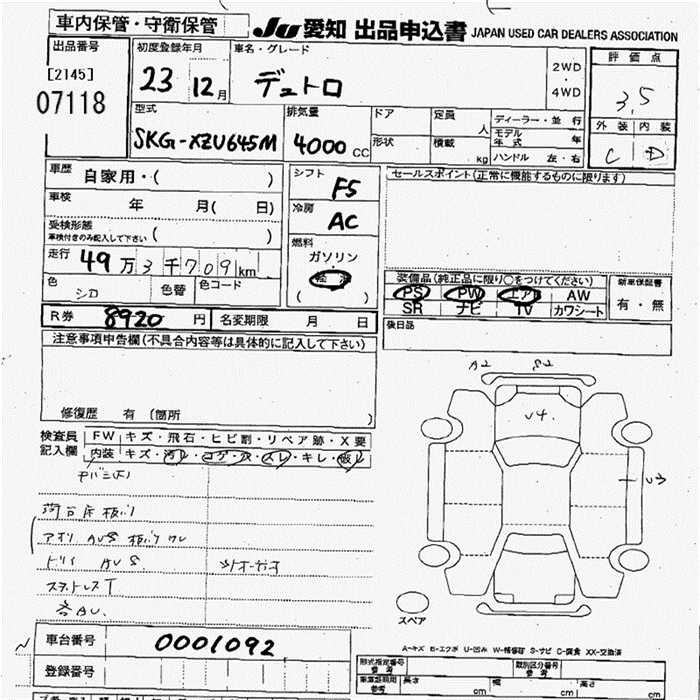 車内保管・守衛保管
JU 愛知 出品申込書 JAPAN USED CAR DEALERS ASSOCIATION
出品番号
[2145]
07118
初度登録年月
23年 12月
車名・グレード
デュトロ
2WD
・
4WD
評価点
3.5
外装 内装
C D
型式
SKG-XZU645M
排気量
4000 CC
ドア
形状
定員 人
積載 kg
ディーラー・並行
モデル年式 年
ハンドル 左・右
車歴 自家用・( )
車検 年 月( 日)
受検形態
車検付きのみ記入して下さい ( )
走行 49万3千709km
色 シロ 色替 色コード
シフト F5
冷房 AC
燃料
ガソリン
軽油
( )
セールスポイント(正常に機能するものに限ります)
装備品(純正品に限り○をつけてください)
PS PW エアB AW
SR ナビ TV カワシート
新車保証書
有・無
後日品
R券 8920 円 名変期限 月 日
注意事項申告欄(不具合内容等は具体的に記入して下さい)
修復歴 有(箇所 )
検査員記入欄
FW キズ・飛石・ヒビ割・リペア跡・X要
内装 キズ・汚レ・コゲ・穴・スレ・キレ・破レ
アオリ AU5
AU5
スタットレスT
各AU.
A2 S2
U4
U3
スペア
A-キズ E-エクボ U-凹み W-補修跡 S-サビ C-腐食 XX-交換済
車台番号 0001092
登録番号
形式指定番号
参考
類別区分番号
参考
参考
長さ cm 幅 cm 高さ cm